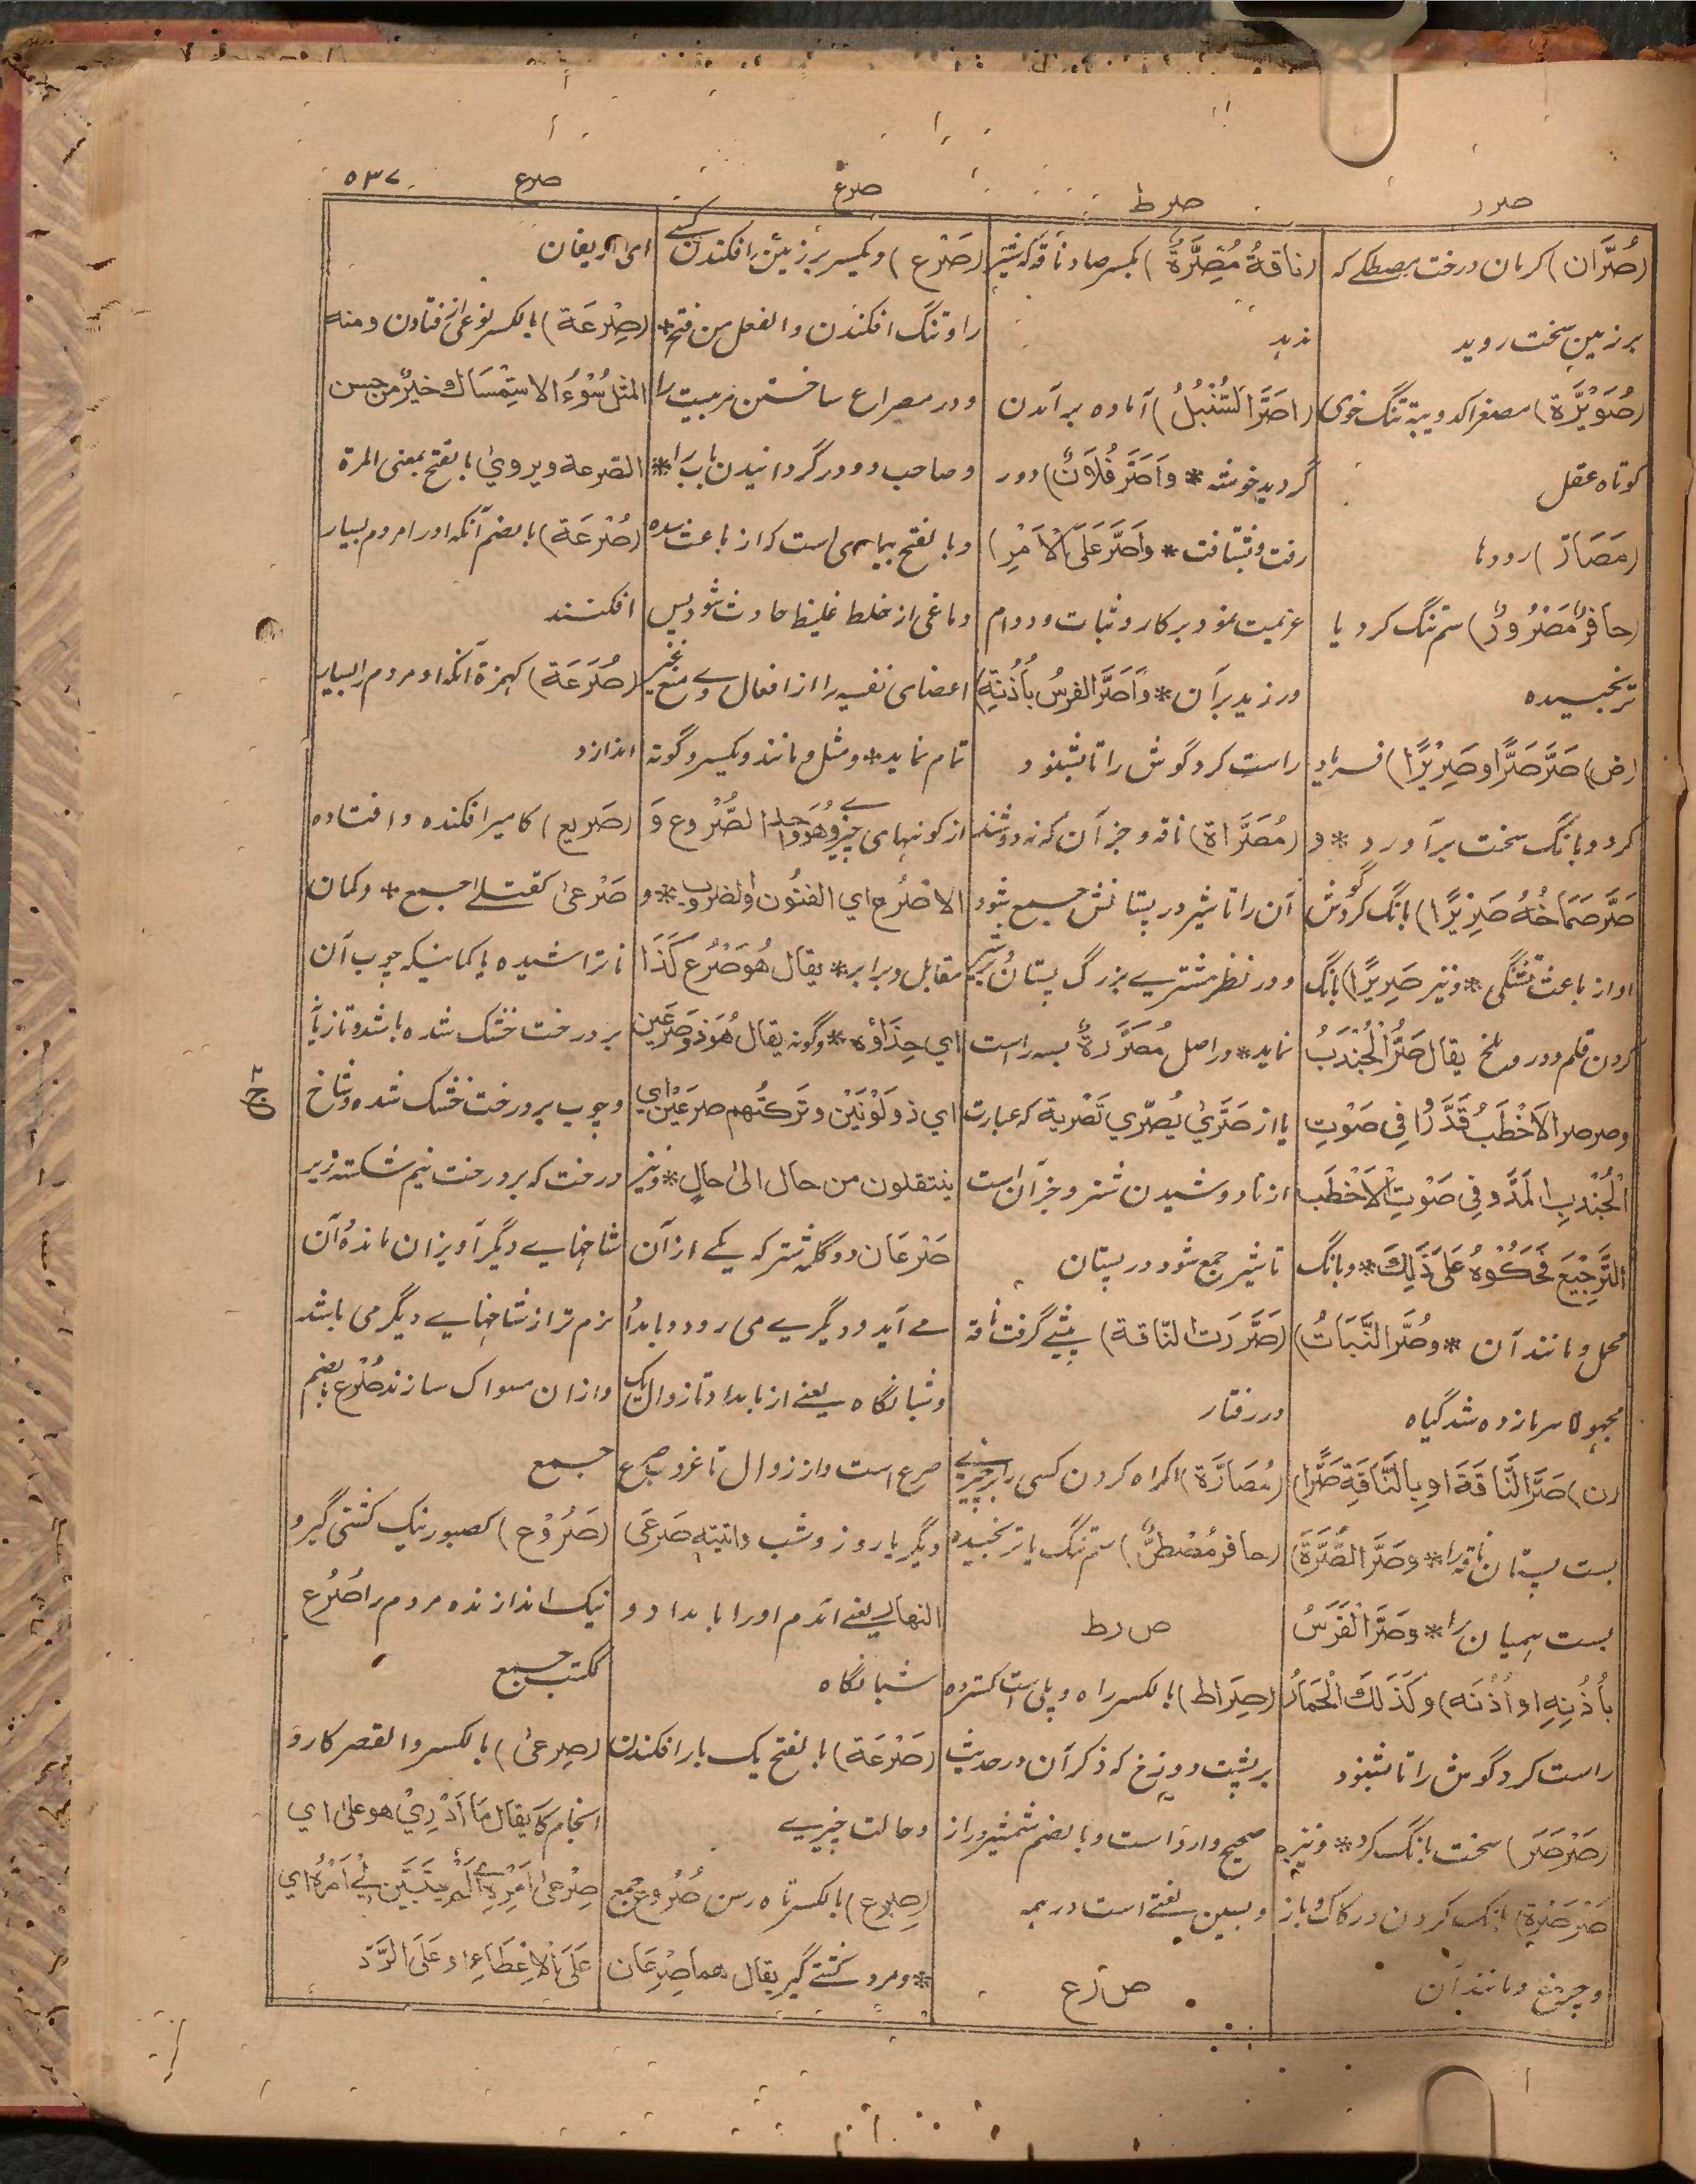 صرر
صرط
صرع
صرع
۵۳۷
(صُرَّان) کرمان درخت مصطکے که
بر زمین سخت روید
(صُوَیْرَّة) مصغرا کدویبة تنگ خوی
کوتاه عقل
(مَصَارّ) رودها
(حافِرٌ مَصْرُورٌ) سم تنگ گرد یا
ترنجیده
(ض) صَرَّ صَرًّا و صَرِیْرًا) فریاد
کرد و بانگ سخت برآورد * و
صَرَّ صَمَاخُهُ صَرِیْرًا) بانگ کرد گوش
او از باعث تشنگی * و نیز صَرِیرًا) بانگ
کردن قلم و در و ملخ یقال صَرَّ الْجُنْدَبُ
و صرصر الاَخْطَبُ قَدَّرُوا فِی صَوْتِ
الْجُنْدَبِ الْمَدَّ و فِی صَوْتِ الْاَخْطَب
التَّرجِیْعَ فَحَکَوْهُ عَلَی ذٰلِكَ * و بانگ
محمل و مانند آن * و صُرَّ النَّبَاتُ)
مجهولا سرما زده شد گیاه
(ن) صَرَّ النَّاقَةَ او بِالنَّاقَةِ صَرًّا)
بست پستان ناقه را * و صَرَّ الصُّرَّةَ)
بست همیان را * و صَرَّ الْفَرَسُ
بِأُذُنِهِ او اُذُنَه) و کَذٰلِكَ الْحِمَارُ
راست کرد گوش را تا بشنود
(صَرْصَرَ) سخت بانگ کرد * و نیز
صَرْصَرة) بانگ کردن در کاک و باز
و چرغ و مانند آن
(ناقةٌ مُصِرَّةٌ) بکسر صاد ناقه که شیر
ندهد
(اصَرَّ السُّنْبُلُ) آماده برآمدن
گردید خوشه * و اَصَرَّ فُلَانٌ) دور
رفت و بشتافت * و اَصَرَّ عَلَی الْاَمْرِ)
عزیمت نمود بر کار و ثبات و دوام
ورزید بر آن * و اَصَرَّ الفرسُ بِاُذُنِهِ)
راست کرد گوش را تا بشنود
(مُصَرَّاة) ناقه و جز آن که نه دوشند
آن را تا شیر در پستانش جمع شود
و در نظر مشتری بزرگ پستان و پر شیر
نماید * در اصل مُصَرَّرَةٌ بسه راست
یا از صَرَّیٰ یُصَرِّي تَصْرِیة که عبارت
از نادوشیدن شتر و جز آن است
تا شیر جمع شود در پستان
(صَرَّرَت النّاقة) پیشے گرفت ناقه
در رفتار
(مُصَارَّة) اکراه کردن کسی را بر چیزے
(حافر مُصْطَرٌّ) سم تنگ یا ترنجیده
ص ر ط
(صِرَاط) بالکسر راه و پلی است گسترده
بر پشت دوزخ که ذکر آن در حدیث
صحیح وارد است و بالضم شمشیر دراز
و بسین لغتے است در همه
ص ر ع
(صَرْع) و یکسر بر زمین را افکندن کسے
را و تنگ افکندن و الفعل من فتح *
و در مصراع ساختن مر بیت را
و صاحب دو در گردانیدن باب را *
و بالفتح بیماری است که از باعث سده
دماغی از خلط غلیظ حادث شود پس
اعضای نفسیه را از افعال وے منع غیر
تمام نماید * و مثل و مانند و یکسر و گونه
از گونهای چیزے و هُوَ واحد الصُّرُوع وَ
الاَصْرُع اي الفنُون والضروب * و
مقابل و برابر * یقال هُوَ صَرْع کَذَا
اي حِذَاؤُه * و گونه یقال هُوَ ذو صَرْعَین
اي ذو لَوْنَیْن و ترکتُهم صرعَیْن اي
ینتقلون من حال الیٰ حالٍ * و نیز
صَرْعَان دو گله شتر که یکے از آن
مے آید و دیگرے می رود و بامداد
و شبانگاه یعنے از بامداد تا زوال یک
صرع است و از زوال تا غروب صرع
دیگر یا روز و شب و اتیته صَرعَیِ
النهار یعنے آمدم او را بامداد و
شبانگاه
(صَرْعَة) بالفتح یک بار افکندن
و حالت چیزے
(صِرع) بالکسر تاه رسن صُرُوع جمع
* و مرد کشتے گیر یقال هما صِرْعَان
ای حریفان
(صِرْعَة) بالکسر نوعی از فتادن و منه
المثل سُوْءُ الاِسْتِمْسَاك خیرٌ من حسن
الصّرعة و یرویٰ بالفتح بمعنی المرة
(صُرْعَة) بالضم آنکه او را مردم بسیار
افکنند
(صُرَعَة) کهمزة آنکه او مردم را بسیار
اندازد
(صَرِیع) کامیر افکنده و افتاده
صَرْعیٰ کقتلے جمع * و کمان
ناتراشیده یا کمانیکه چوب آن
بر درخت خشک شده باشد و تازیانه
و چوب بر درخت خشک شده و شاخ
درخت که بر درخت نیم شکسته زیر
شاخهاے دیگر آویزان مانده آن
نرم تر از شاخهاے دیگر می باشد
و ازان مسواک سازند صُرُع بضم
جمع
(صَرُوْع) کصبور نیک کشتی گیر و
نیک اندازنده مردم را صُرُع
ککتب جمع
(صِرعیٰ) بالکسر و القصر کار و
انجام کار یقال مَا اَدْرِيْ هو علیٰ اي
صِرْعیٰ اَمْرِهِ اي لَمْ یَتَبَیَّن لِيْ اَمْرُهُ اي
عَلَی الْاِعْطَاءِ او عَلَی الرَّدّ